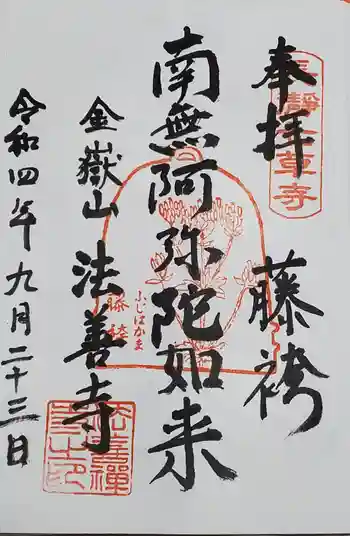 奉拝
藤袴
南無阿弥陀如来
藤袴
ふじばかま
金嶽山
法善寺
令和四年九月二十三日